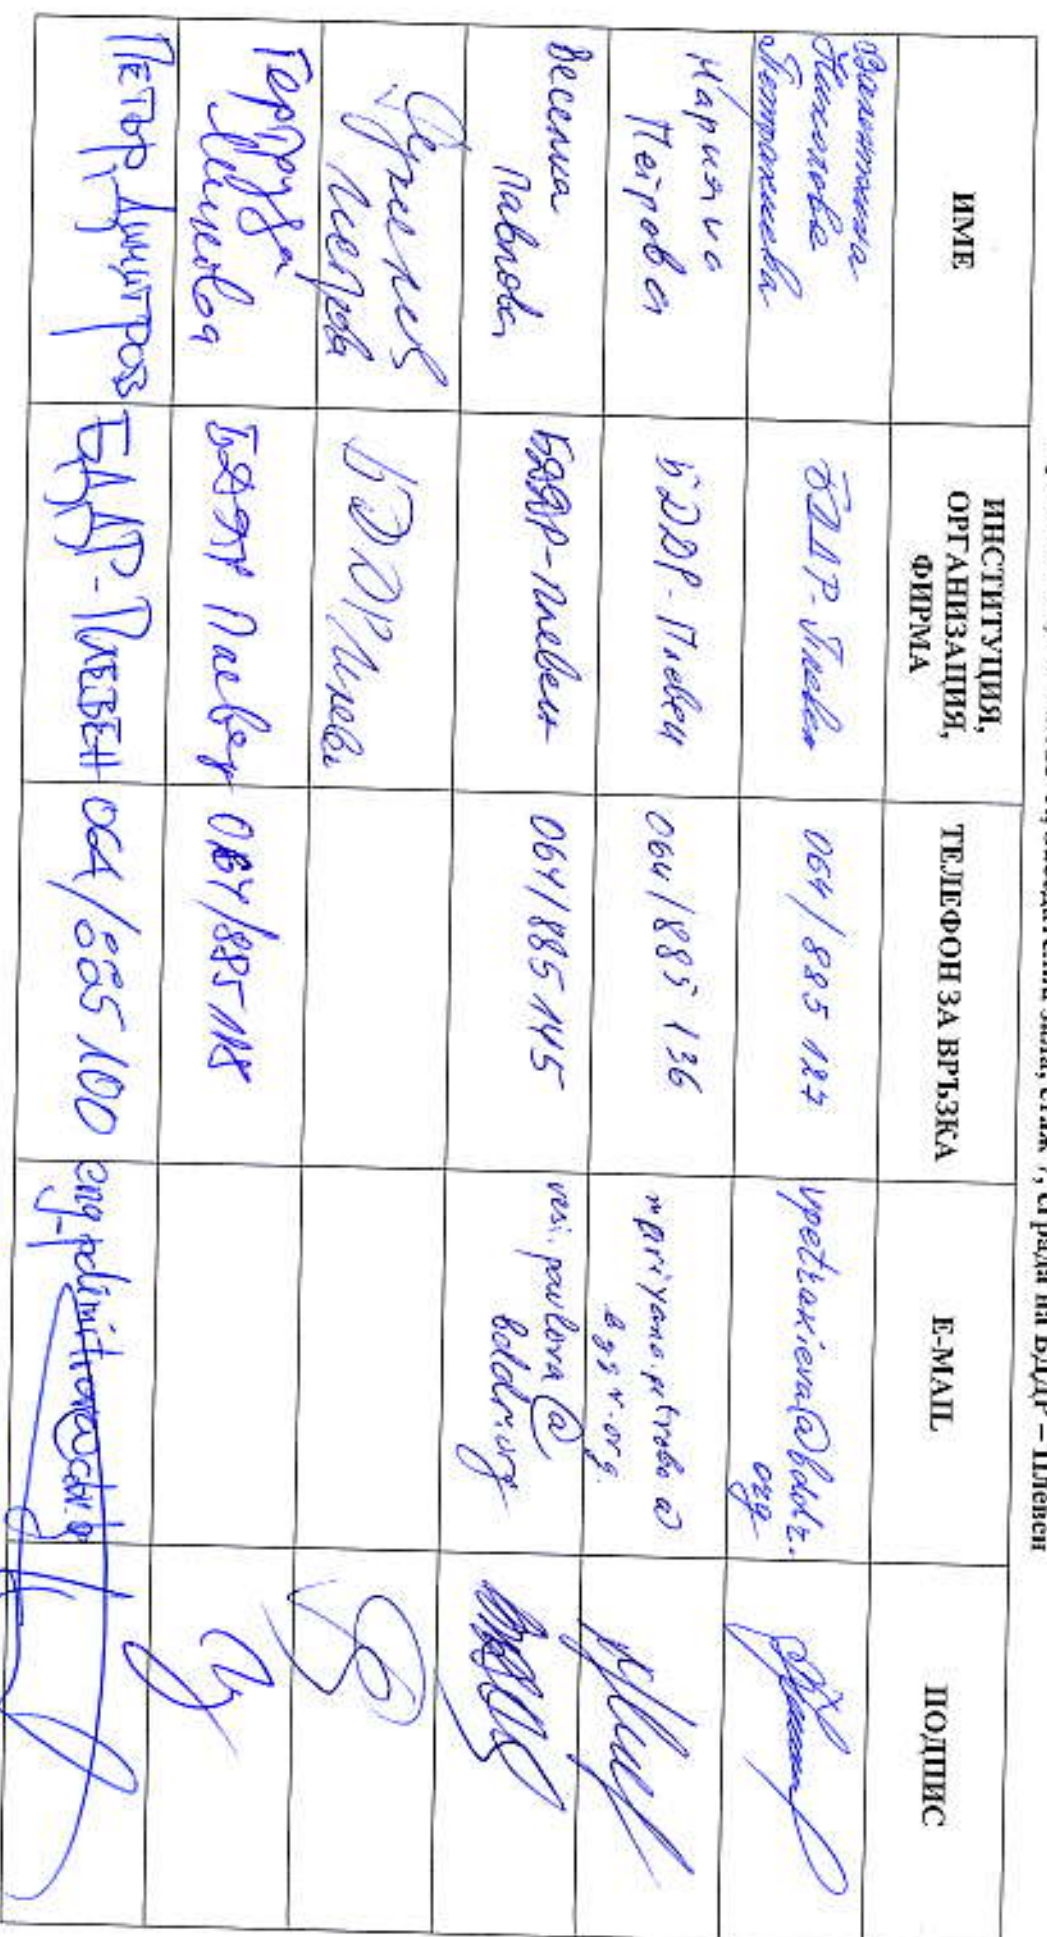 заседателна зала, етаж 7, сграда на БДДР – Плевен
ИМЕ
ИНСТИТУЦИЯ,
ОРГАНИЗАЦИЯ,
ФИРМА
ТЕЛЕФОН ЗА ВРЪЗКА
E-MAIL
ПОДПИС
Валентина
Николова
Петракиева
БДДР-Плевен
064/885 127
vpetrakieva@bddr.
org
Марияна
Петрова
БДДР-Плевен
064/885 136
mariyana.petrova@
Весела
Павлова
БДДР-Плевен
064/885 145
vesi.pavlova@
bddr.org
БДДР Плевен
БДДР Плевен
064/885 118
ПЕТЪР ДИМИТРОВ
БДДР-ПЛЕВЕН
064/885 100